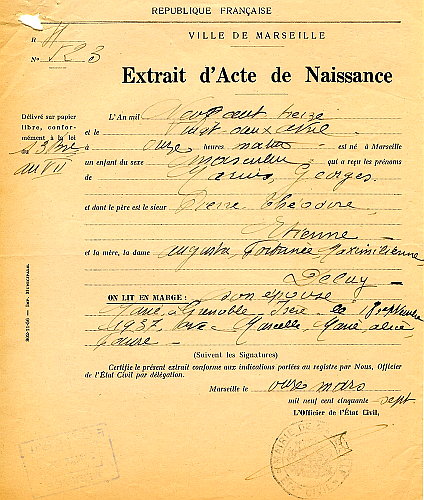 REPUBLIQUE FRANÇAISE
VILLE DE MARSEILLE
R H
No 523
Extrait d'Acte de Naissance
Délivré sur papier
libre, confor-
mément à la loi
du 13 Bre
an VII
L'An mil neuf cent treize
et le vingt deux
à onze heures matin est né à Marseille
un enfant du sexe masculin qui a reçu les prénoms
de Marius, Georges
et dont le père est le sieur Pierre Théodore
Etienne
et la mère, la dame Augusta, Fortunée Maximilienne
son épouse
ON LIT EN MARGE :
Marié à Grenoble Isère le 18 septembre
1937 avec Marcelle, Marie, Alice
(Suivent les Signatures)
Certifie le présent extrait conforme aux indications portées au registre par Nous, Officier
de l'État Civil par délégation.
Marseille le onze mars
mil neuf cent cinquante sept
L'Officier de l'État Civil,